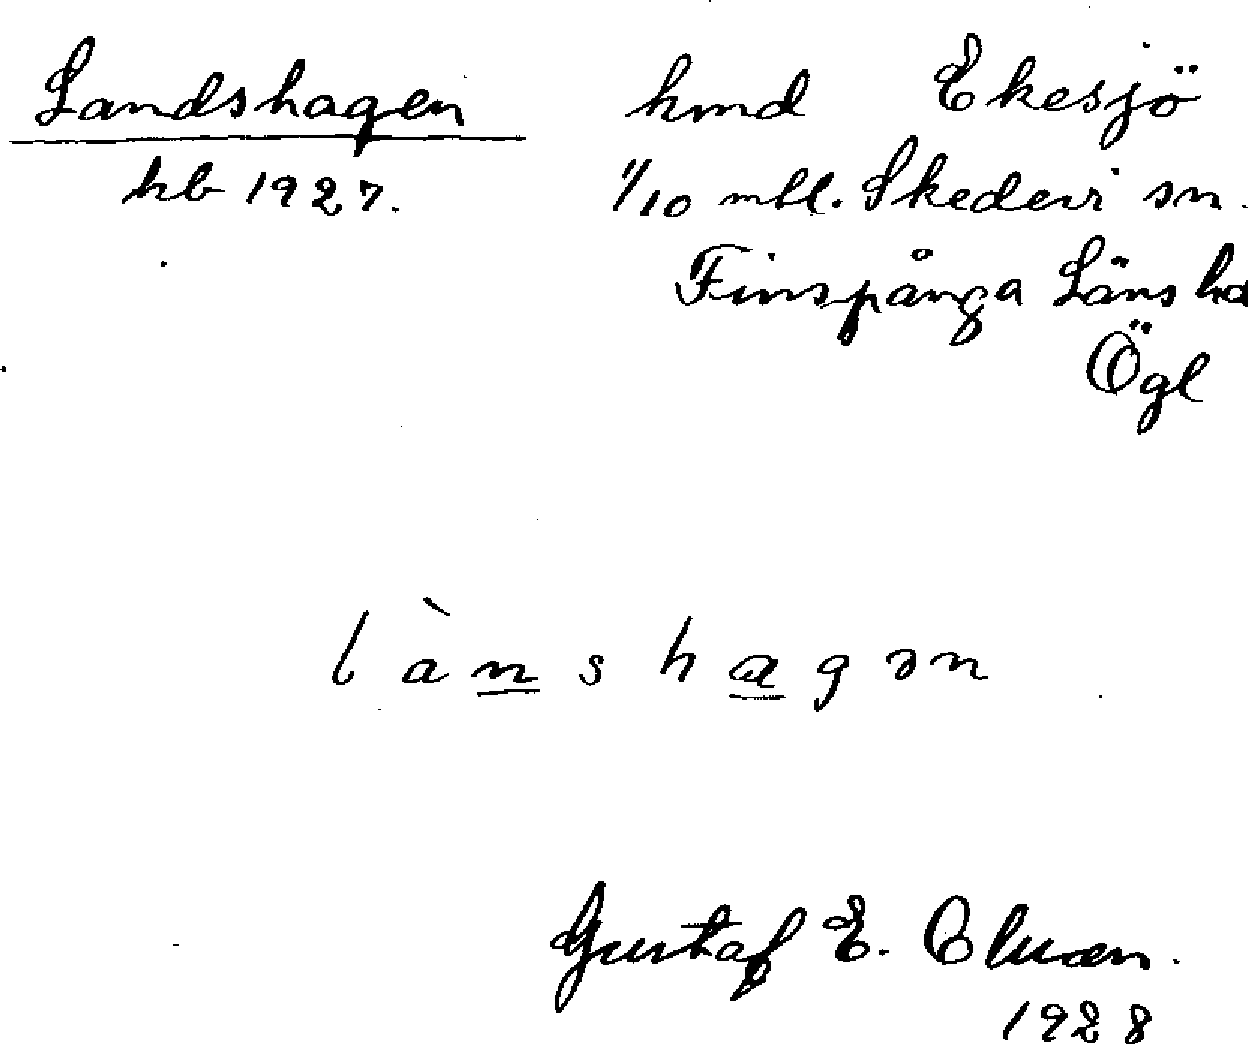 Landshagen hmd Ekesjö
hb 1927. 1/10 mtl. Skedevi sn.
Finspånga Läns hd
Ögl
lànshagən
Gustaf E.
1928